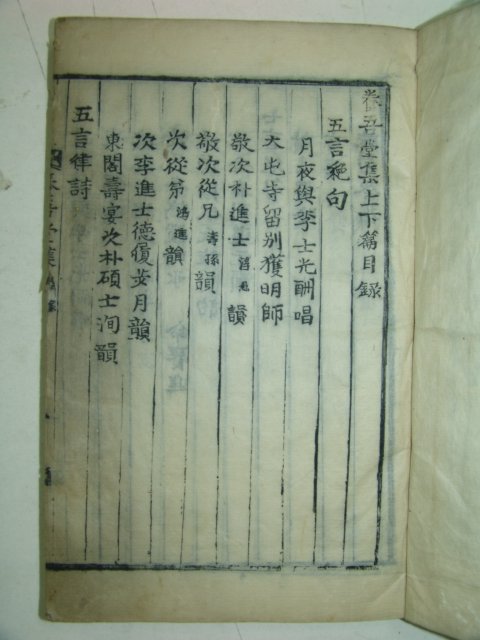 養吾堂集上下篇目録
五言絶句
月夜與李士光酬唱
大屯寺留別獲明師
敬次朴進士韻
敬次從兄壽孫韻
次從弟鴻進韻
次李進士德履步月韻
東閣壽宴次朴碩士洵韻
五言律詩